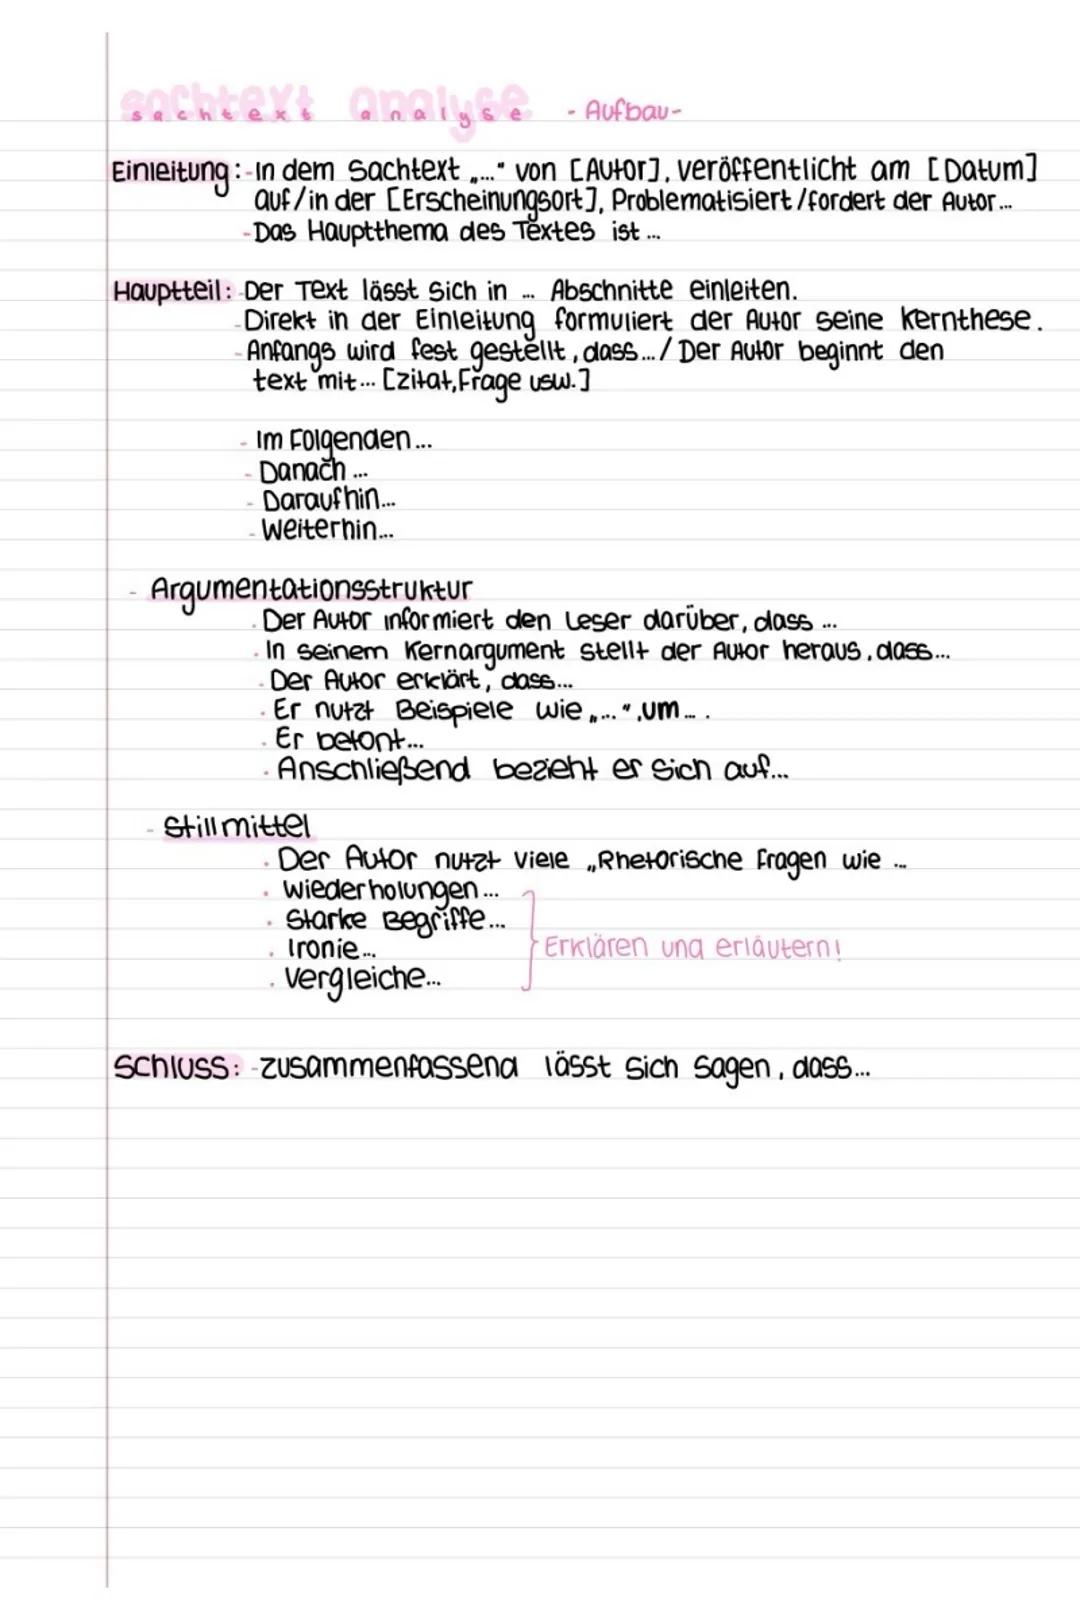 sachtext analyse - Aufbau-
sachtext analyse
Einleitung: - In dem Sachtext „..." von [Autor], veröffentlicht am [Datum]
auf/in der [Erscheinungsort], Problematisiert/fordert der Autor...
- Das Hauptthema des Textes ist ...
Hauptteil: - Der Text lässt sich in ... Abschnitte einleiten.
- Direkt in der Einleitung formuliert der Autor seine Kernthese.
- Anfangs wird fest gestellt, dass.../ Der Autor beginnt den
text mit... [zitat, Frage usw.]
- Im Folgenden...
- Danach ...
- Daraufhin...
- Weiterhin...
- Argumentationsstruktur
· Der Autor informiert den Leser darüber, dass ...
· In seinem Kernargument stellt der Autor heraus, dass...
· Der Autor erklärt, dass...
· Er nutzt Beispiele wie „...", um ... .
· Er betont...
· Anschließend bezieht er sich auf...
- Stillmittel
· Der Autor nutzt viele „Rhetorische Fragen wie ...
· Wiederholungen...
· Starke Begriffe...
· Ironie... Erklären und erläutern!
· Vergleiche...
Schluss: - Zusammenfassend lässt sich sagen, dass...